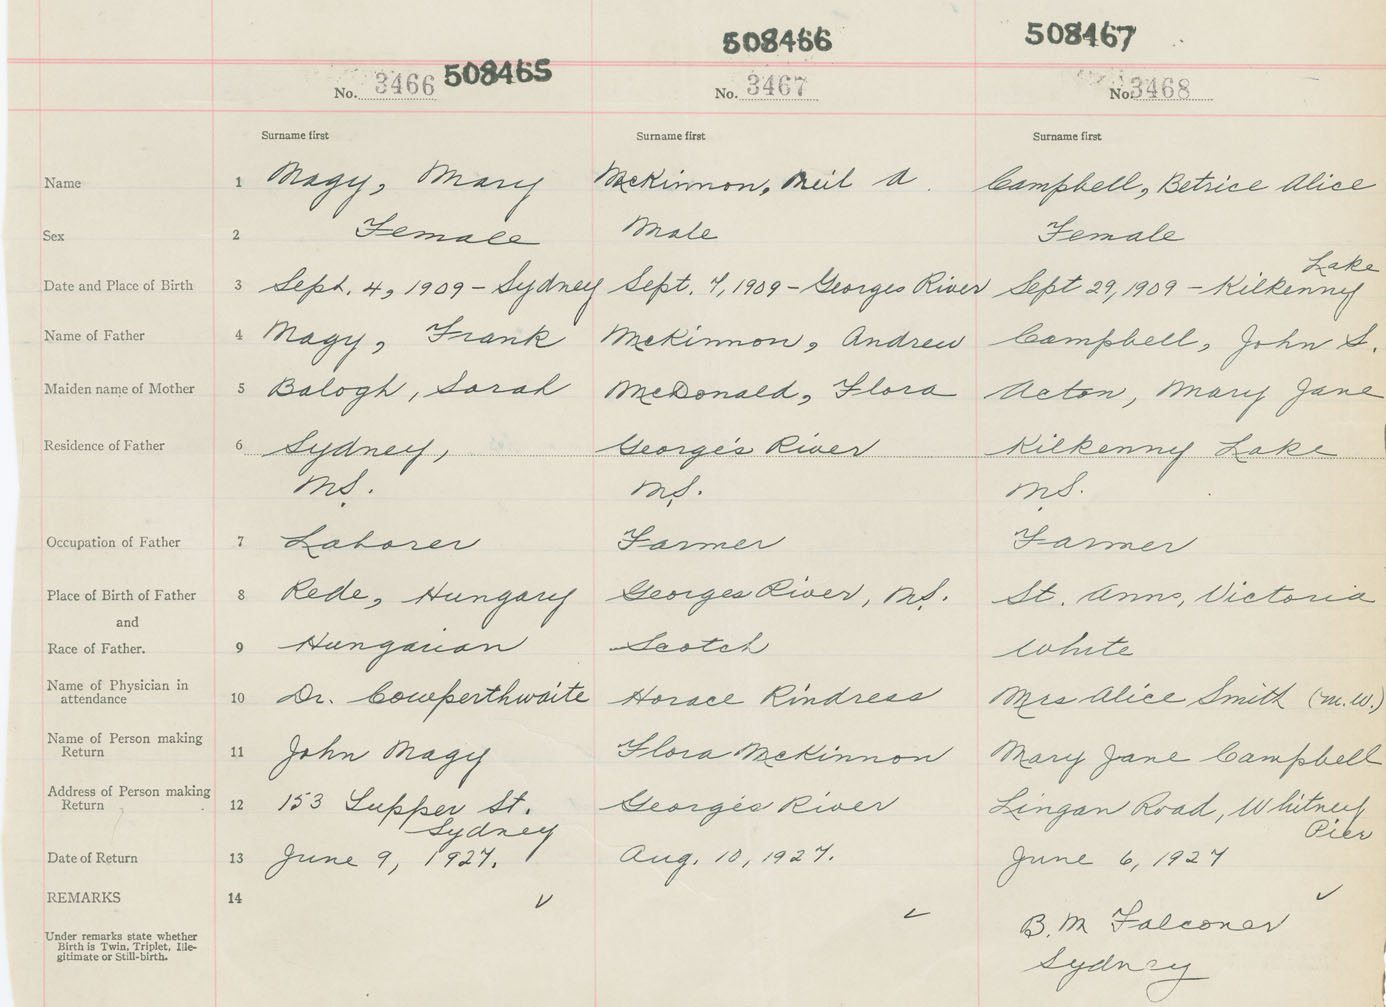 508465 508466 508467
No. 3466 No. 3467 No. 3468
Surname first Surname first Surname first
Name 1 Nagy, Mary McKinnon, Neil A. Campbell, Betrice Alice
Sex 2 Female Male Female
Lake
Date and Place of Birth 3 Sept. 4, 1909 - Sydney Sept. 7, 1909 - Georges River Sept 29, 1909 - Kilkenny
Name of Father 4 Nagy, Frank McKinnon, Andrew Campbell, John S.
Maiden name of Mother 5 Balogh, Sarah McDonald, Flora Acton, Mary Jane
Residence of Father 6 Sydney, George's River Kilkenny Lake
N.S. N.S. N.S.
Occupation of Father 7 Laborer Farmer Farmer
Place of Birth of Father 8 Rede, Hungary Georges River, N.S. St. Anns, Victoria
and
Race of Father. 9 Hungarian Scotch White
Name of Physician in
attendance 10 Dr. Cowperthwaite Horace Rindress Mrs Alice Smith (M.W.)
Name of Person making
Return 11 John Nagy Flora McKinnon Mary Jane Campbell
Address of Person making
Return 12 153 Tupper St. George's River Lingan Road, Whitney
Sydney Pier
Date of Return 13 June 9, 1927. Aug. 10, 1927. June 6, 1927
REMARKS 14
B. M Falconer
Under remarks state whether
Birth is Twin, Triplet, Ille-
gitimate or Still-birth.
Sydney